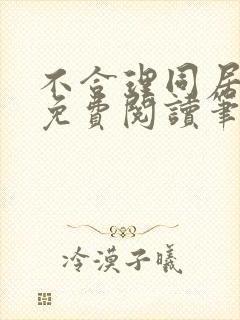 不合理同居
免費閱讀筆
冷漠子曦